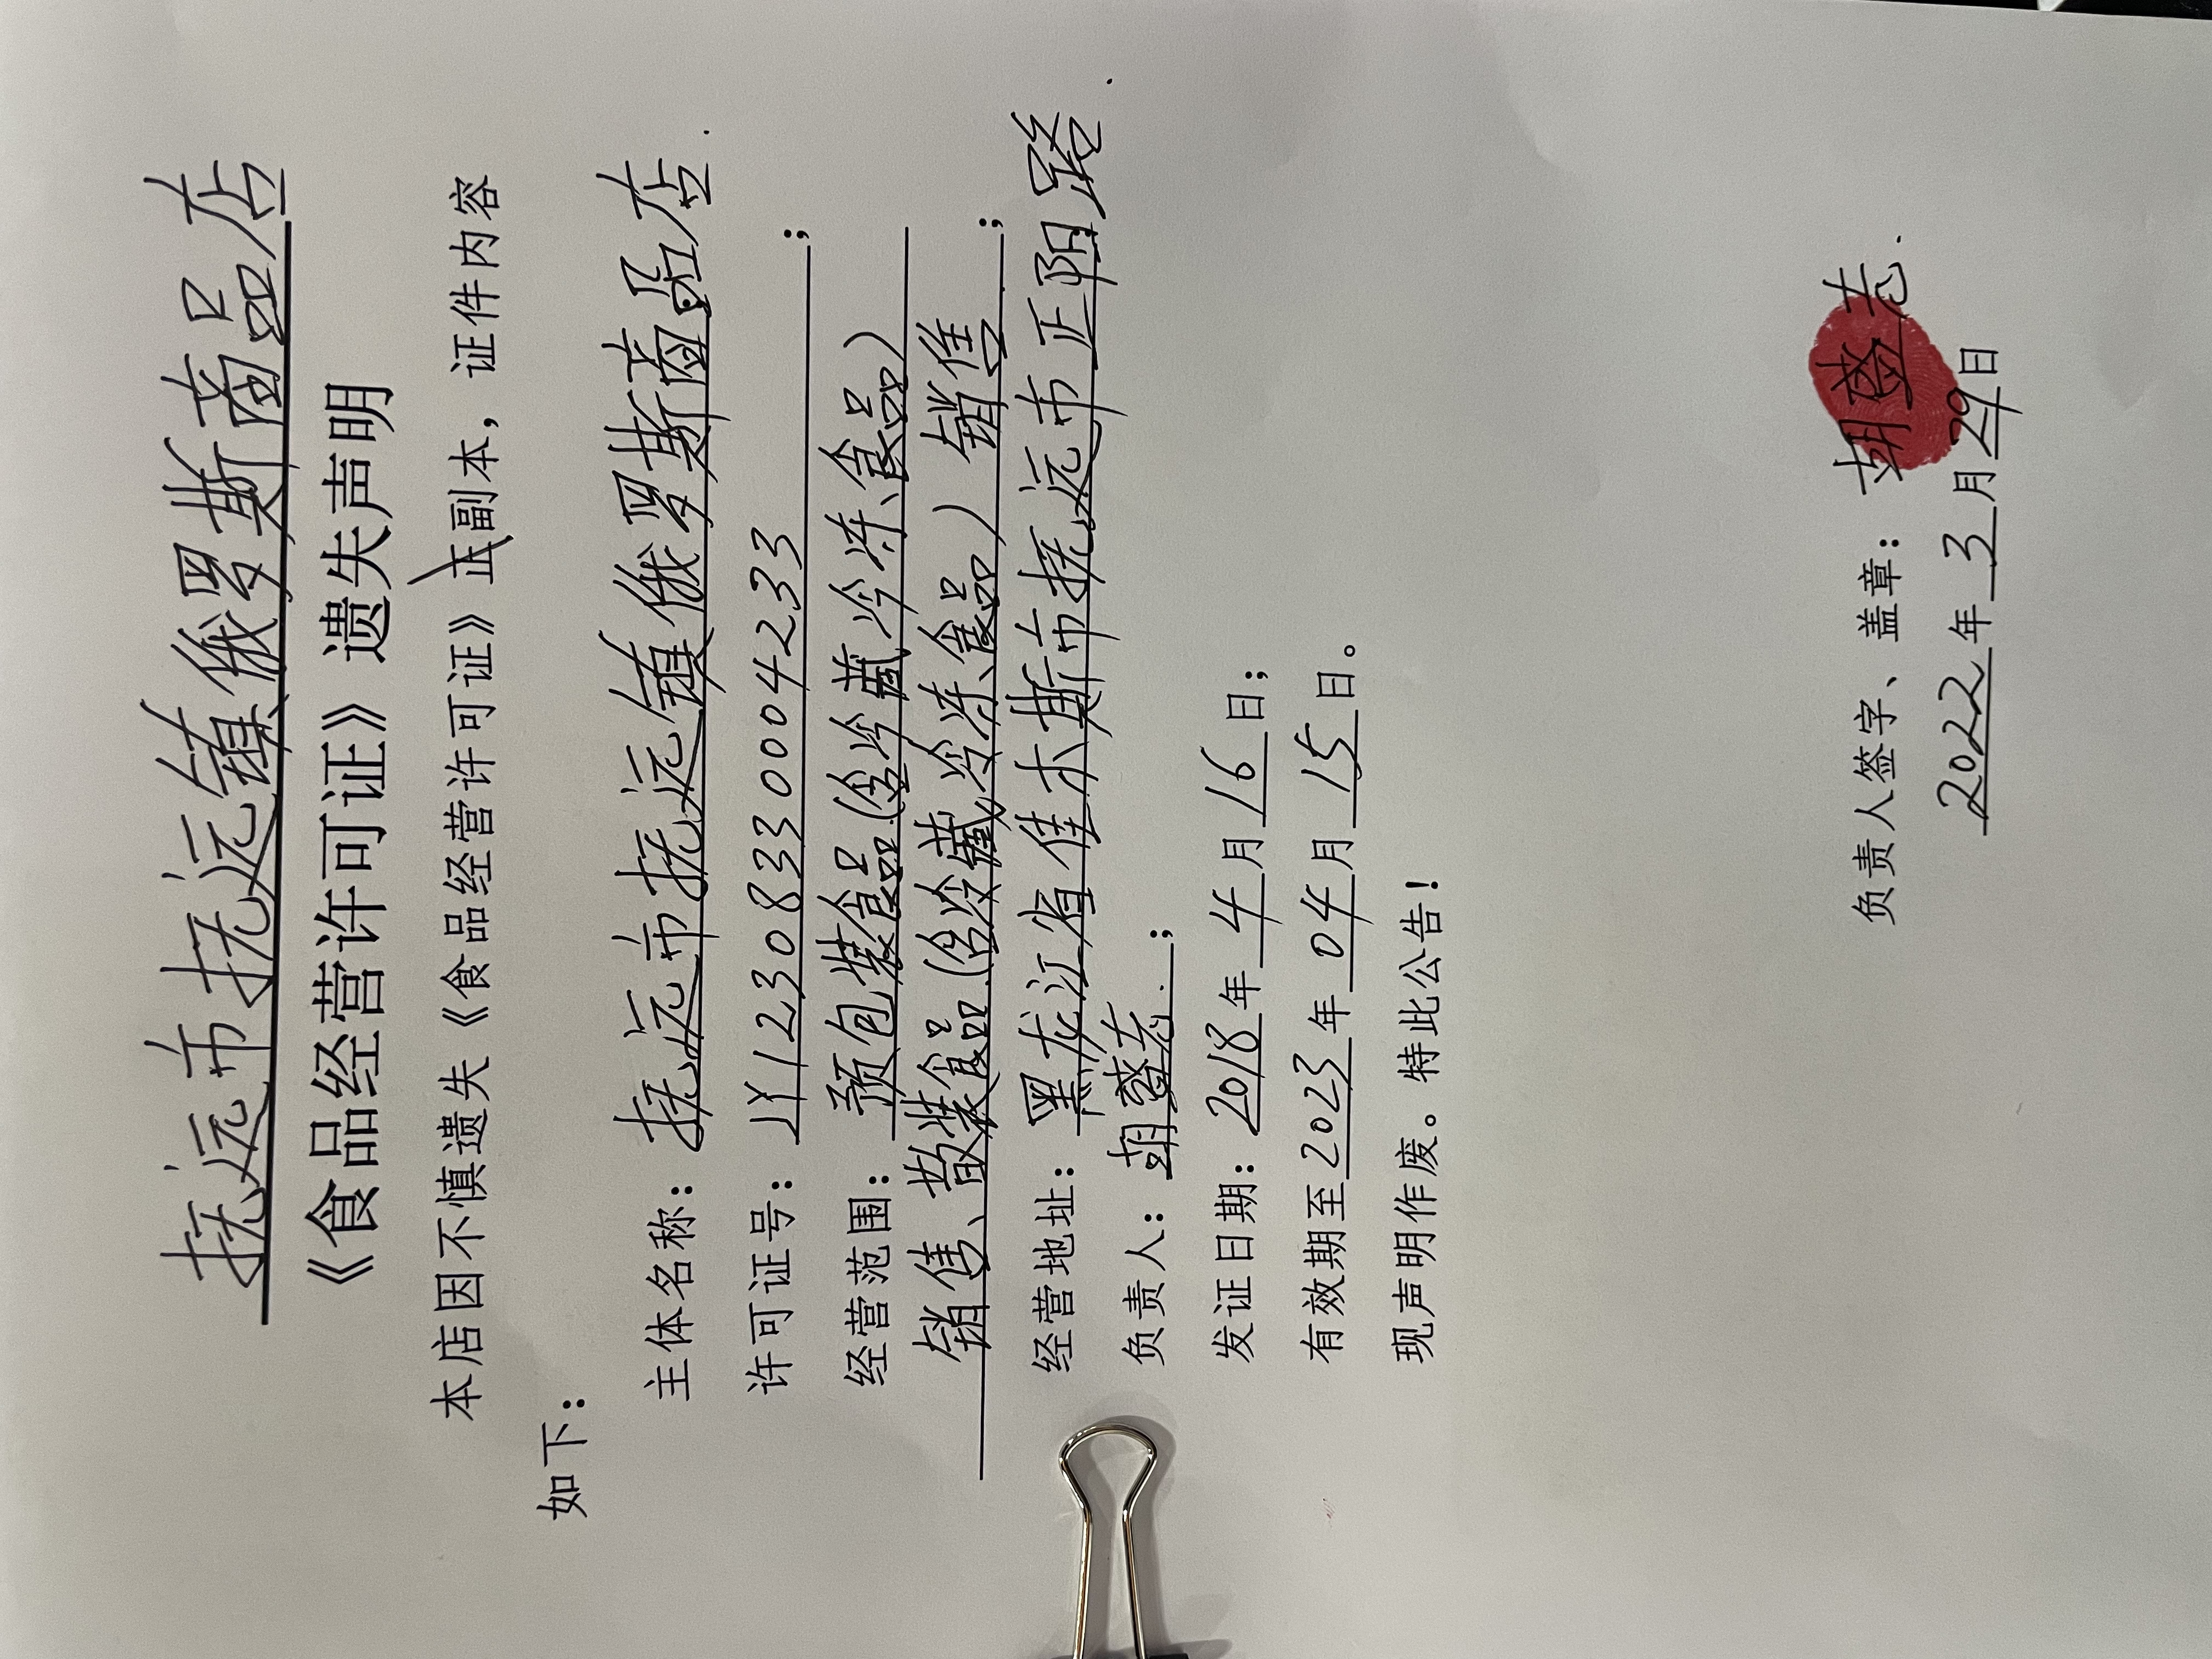 抚远市抚远镇俄罗斯商品店
《食品经营许可证》遗失声明
本店因不慎遗失《食品经营许可证》正副本，证件内容
如下：
主体名称：抚远市抚远镇俄罗斯商品店.
许可证号：JY12308330004233；
经营范围：预包装食品(含冷藏冷冻食品)
销售、散装食品(含冷藏冷冻食品)销售；
经营地址：黑龙江省佳木斯市抚远市正阳路.
负责人：；
发证日期：2018年4月16日；
有效期至2023年04月15日。
现声明作废。特此公告！
负责人签字、盖章：
2022年3月29日